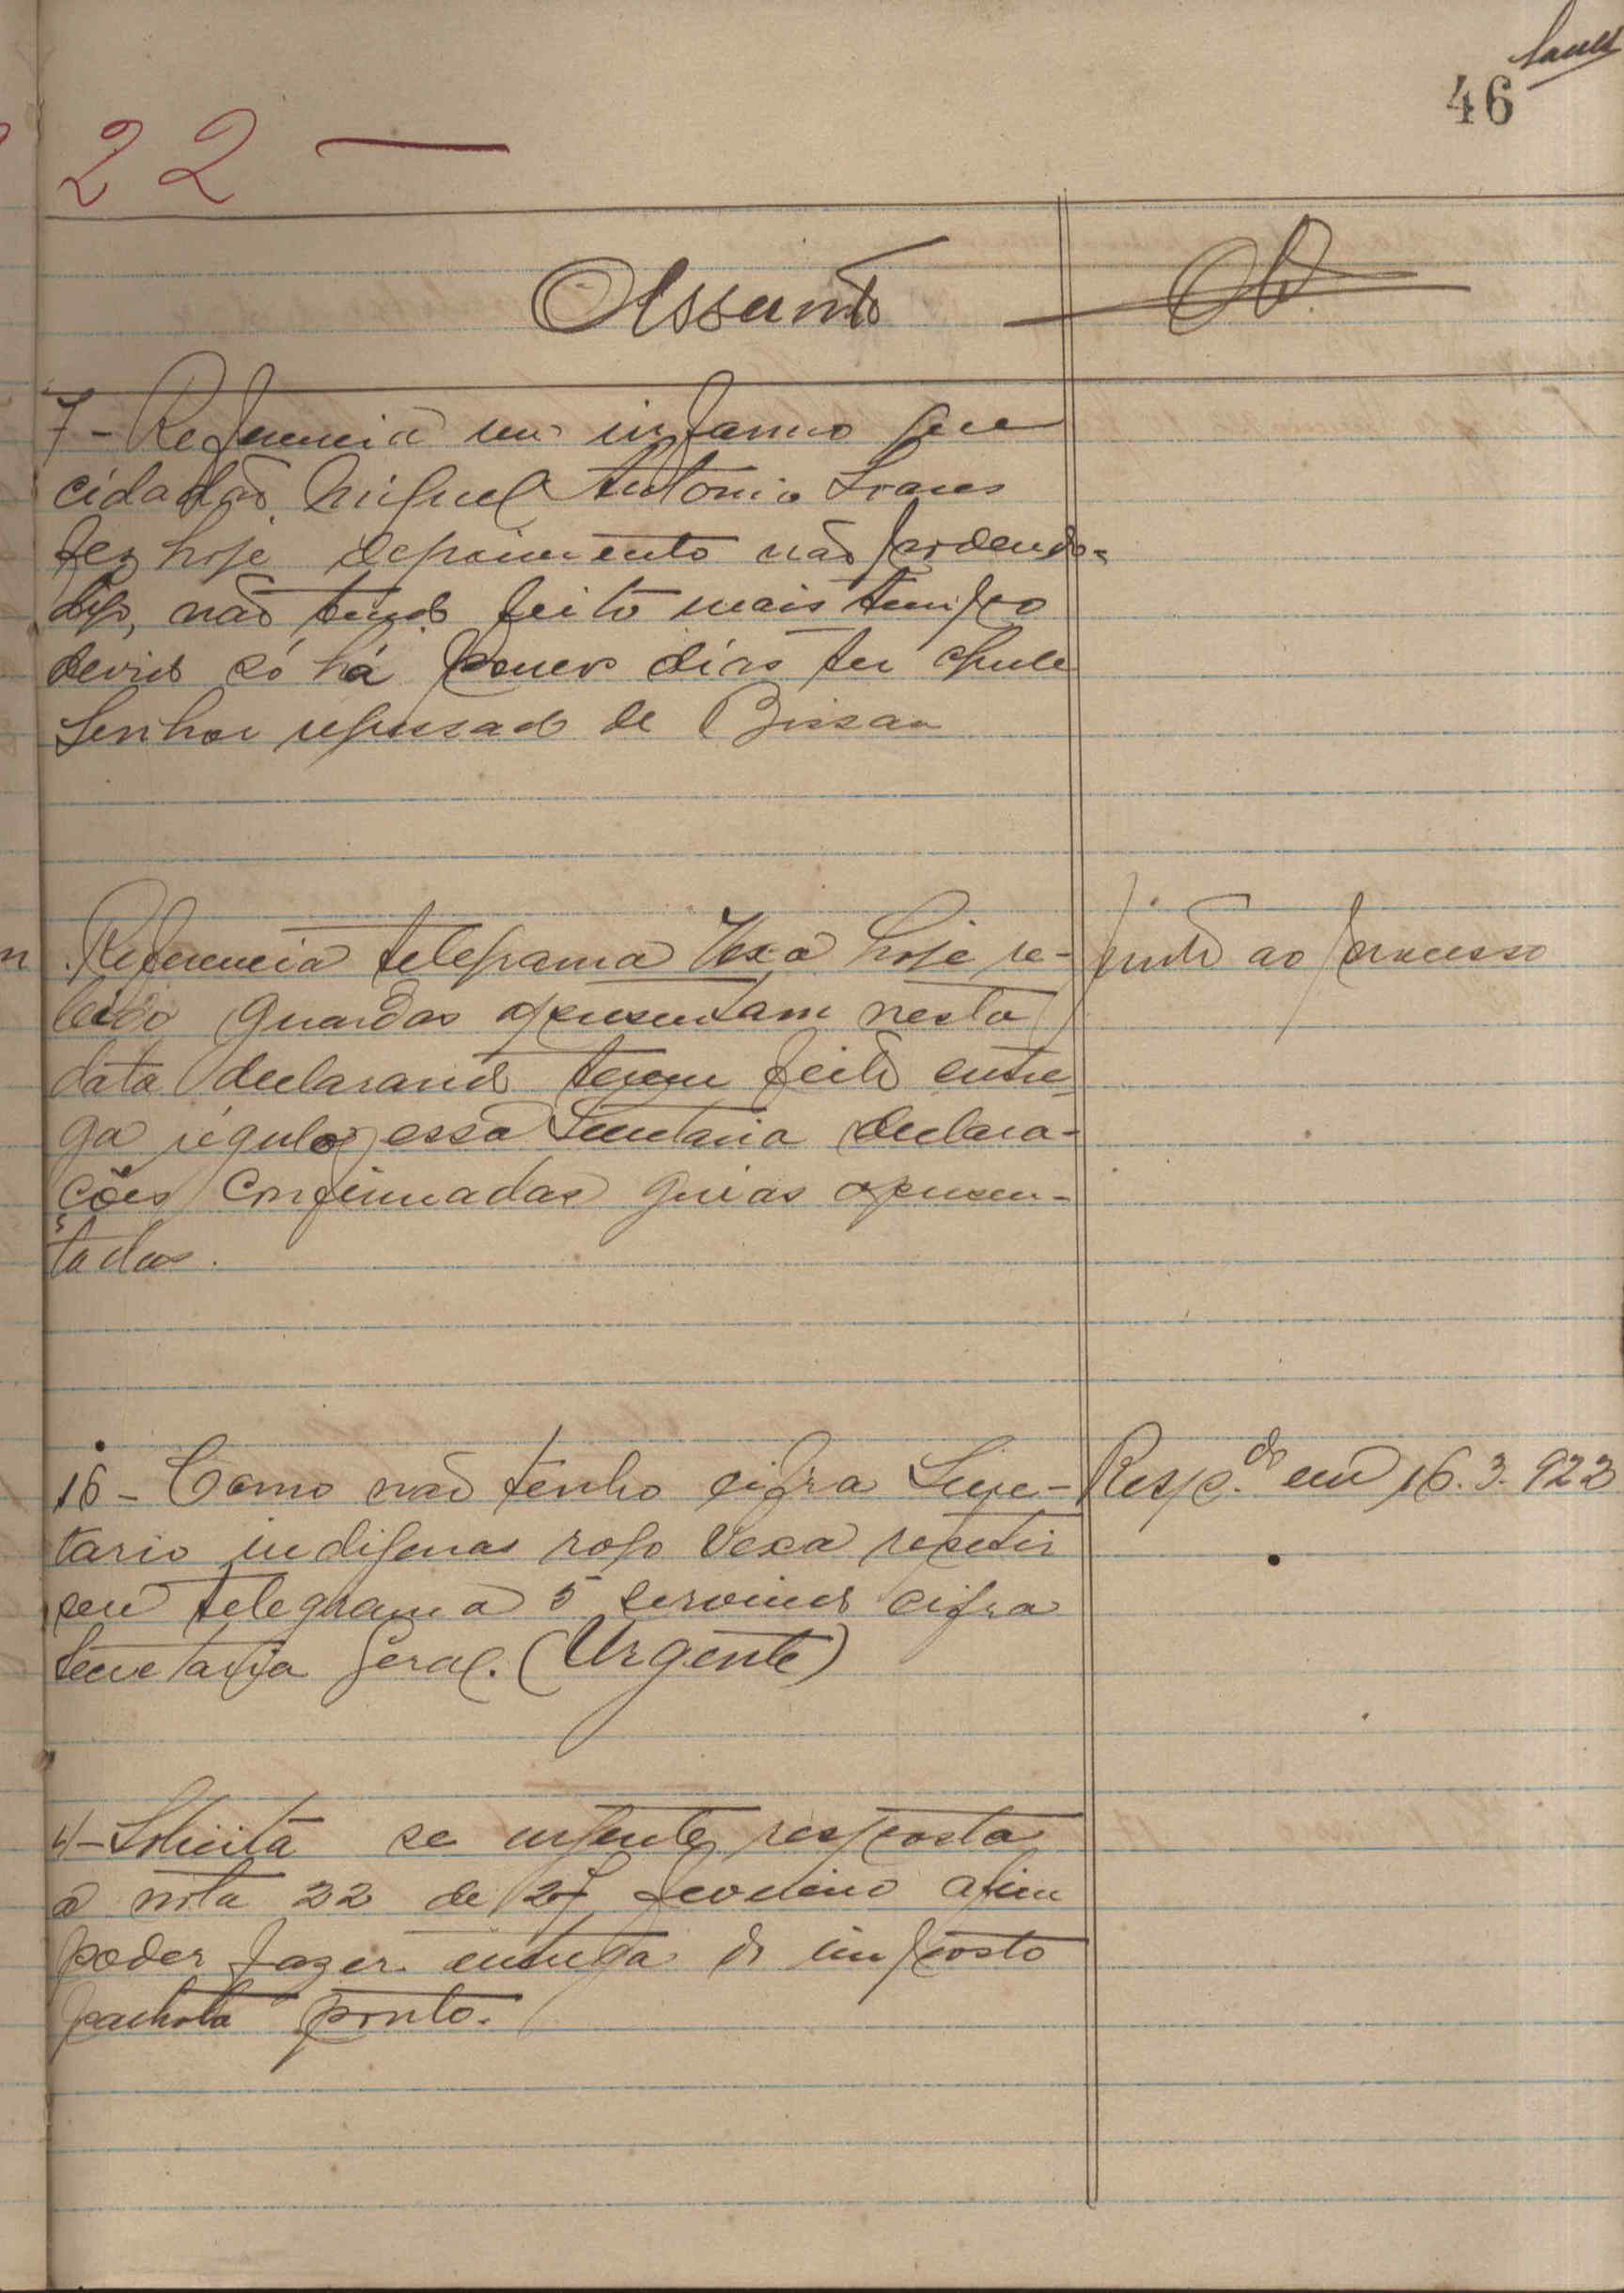 46
22 —
Assunto
Ob.
7 - Referencia seu informo que
cidadão Miguel Antonio Soares
fez hoje depoimento não podendo-
não tendo feito mais tempo
devido só há poucos dias ter
Senhor regressado de Bissau
Referencia telegrama Vexa hoje re-
cebido guardas apresentam nesta
data declarando terem feito entre
ga régulos essa Secretaria declara-
ções confirmadas guias apresen-
tadas.
Junto ao processo
16 - Como não tenho cifra Secre-
tario indigenas rogo Vexa repetir
seu telegrama 5 servindo cifra
Secretaria Geral. (Urgente)
Resp.do em 16.3.922
4 - Solicita se urgente resposta
a nota 22 de 27 fevereiro afim
poder fazer entrega de imposto
palhota pronto.